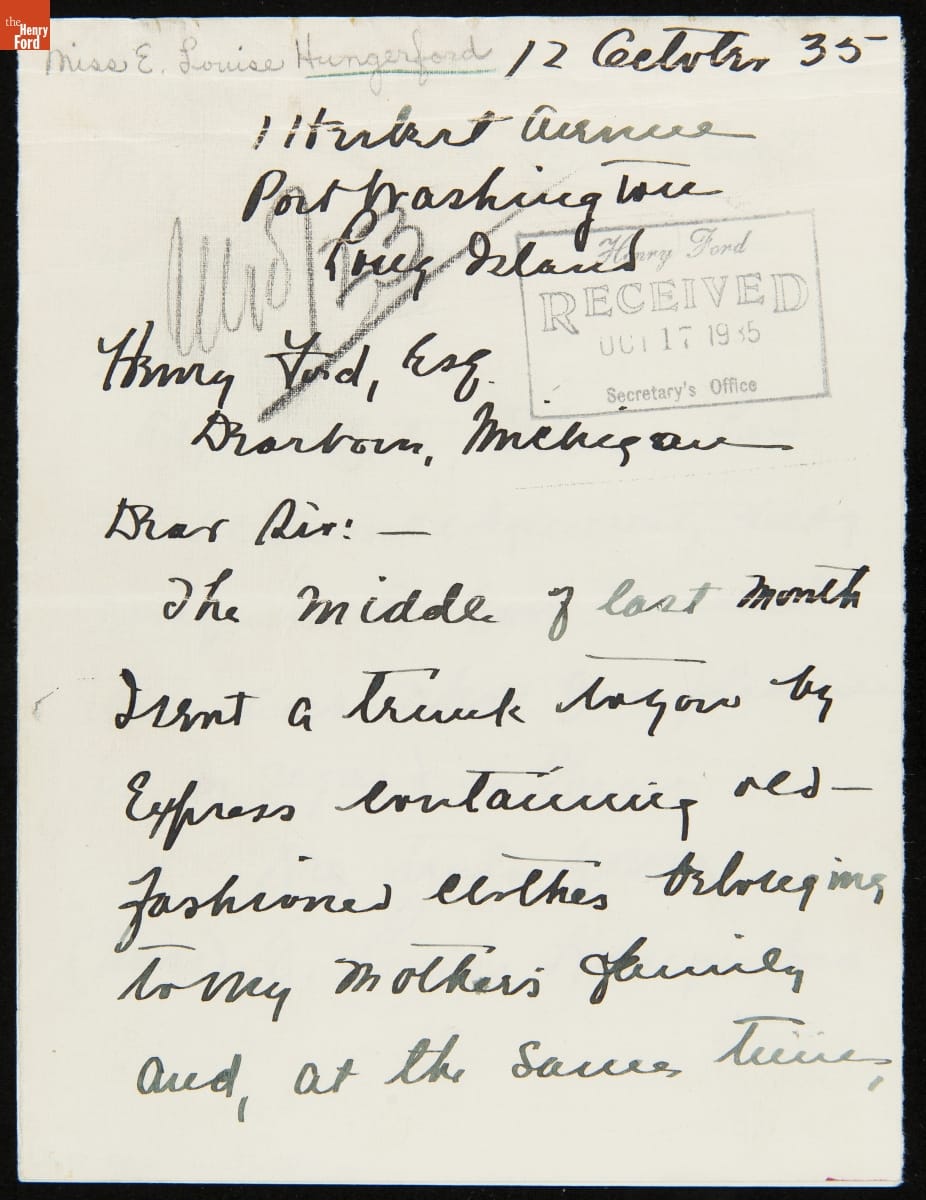 the
Henry
Ford
Miss E. Louise Hungerford
12 October 35
1 Herbert Avenue
Port Washington
Long Island
Henry Ford
RECEIVED
OCT 17 1935
Secretary's Office
Henry Ford, Esq.
Dearborn, Michigan
Dear Sir: —
The middle of last month
I sent a trunk to you by
Express containing old-
fashioned clothes belonging
to my mother's family
and, at the same time,